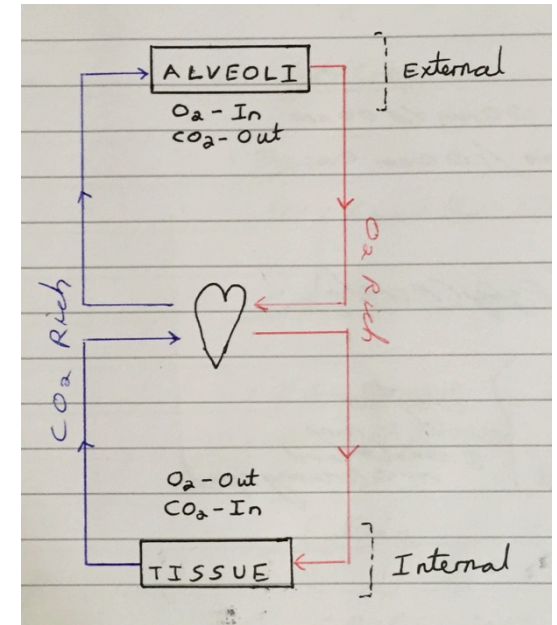 ALVEOLI
External
O₂-In
CO₂-Out
O₂ Rich
CO₂ Rich
O₂-Out
CO₂-In
TISSUE
Internal